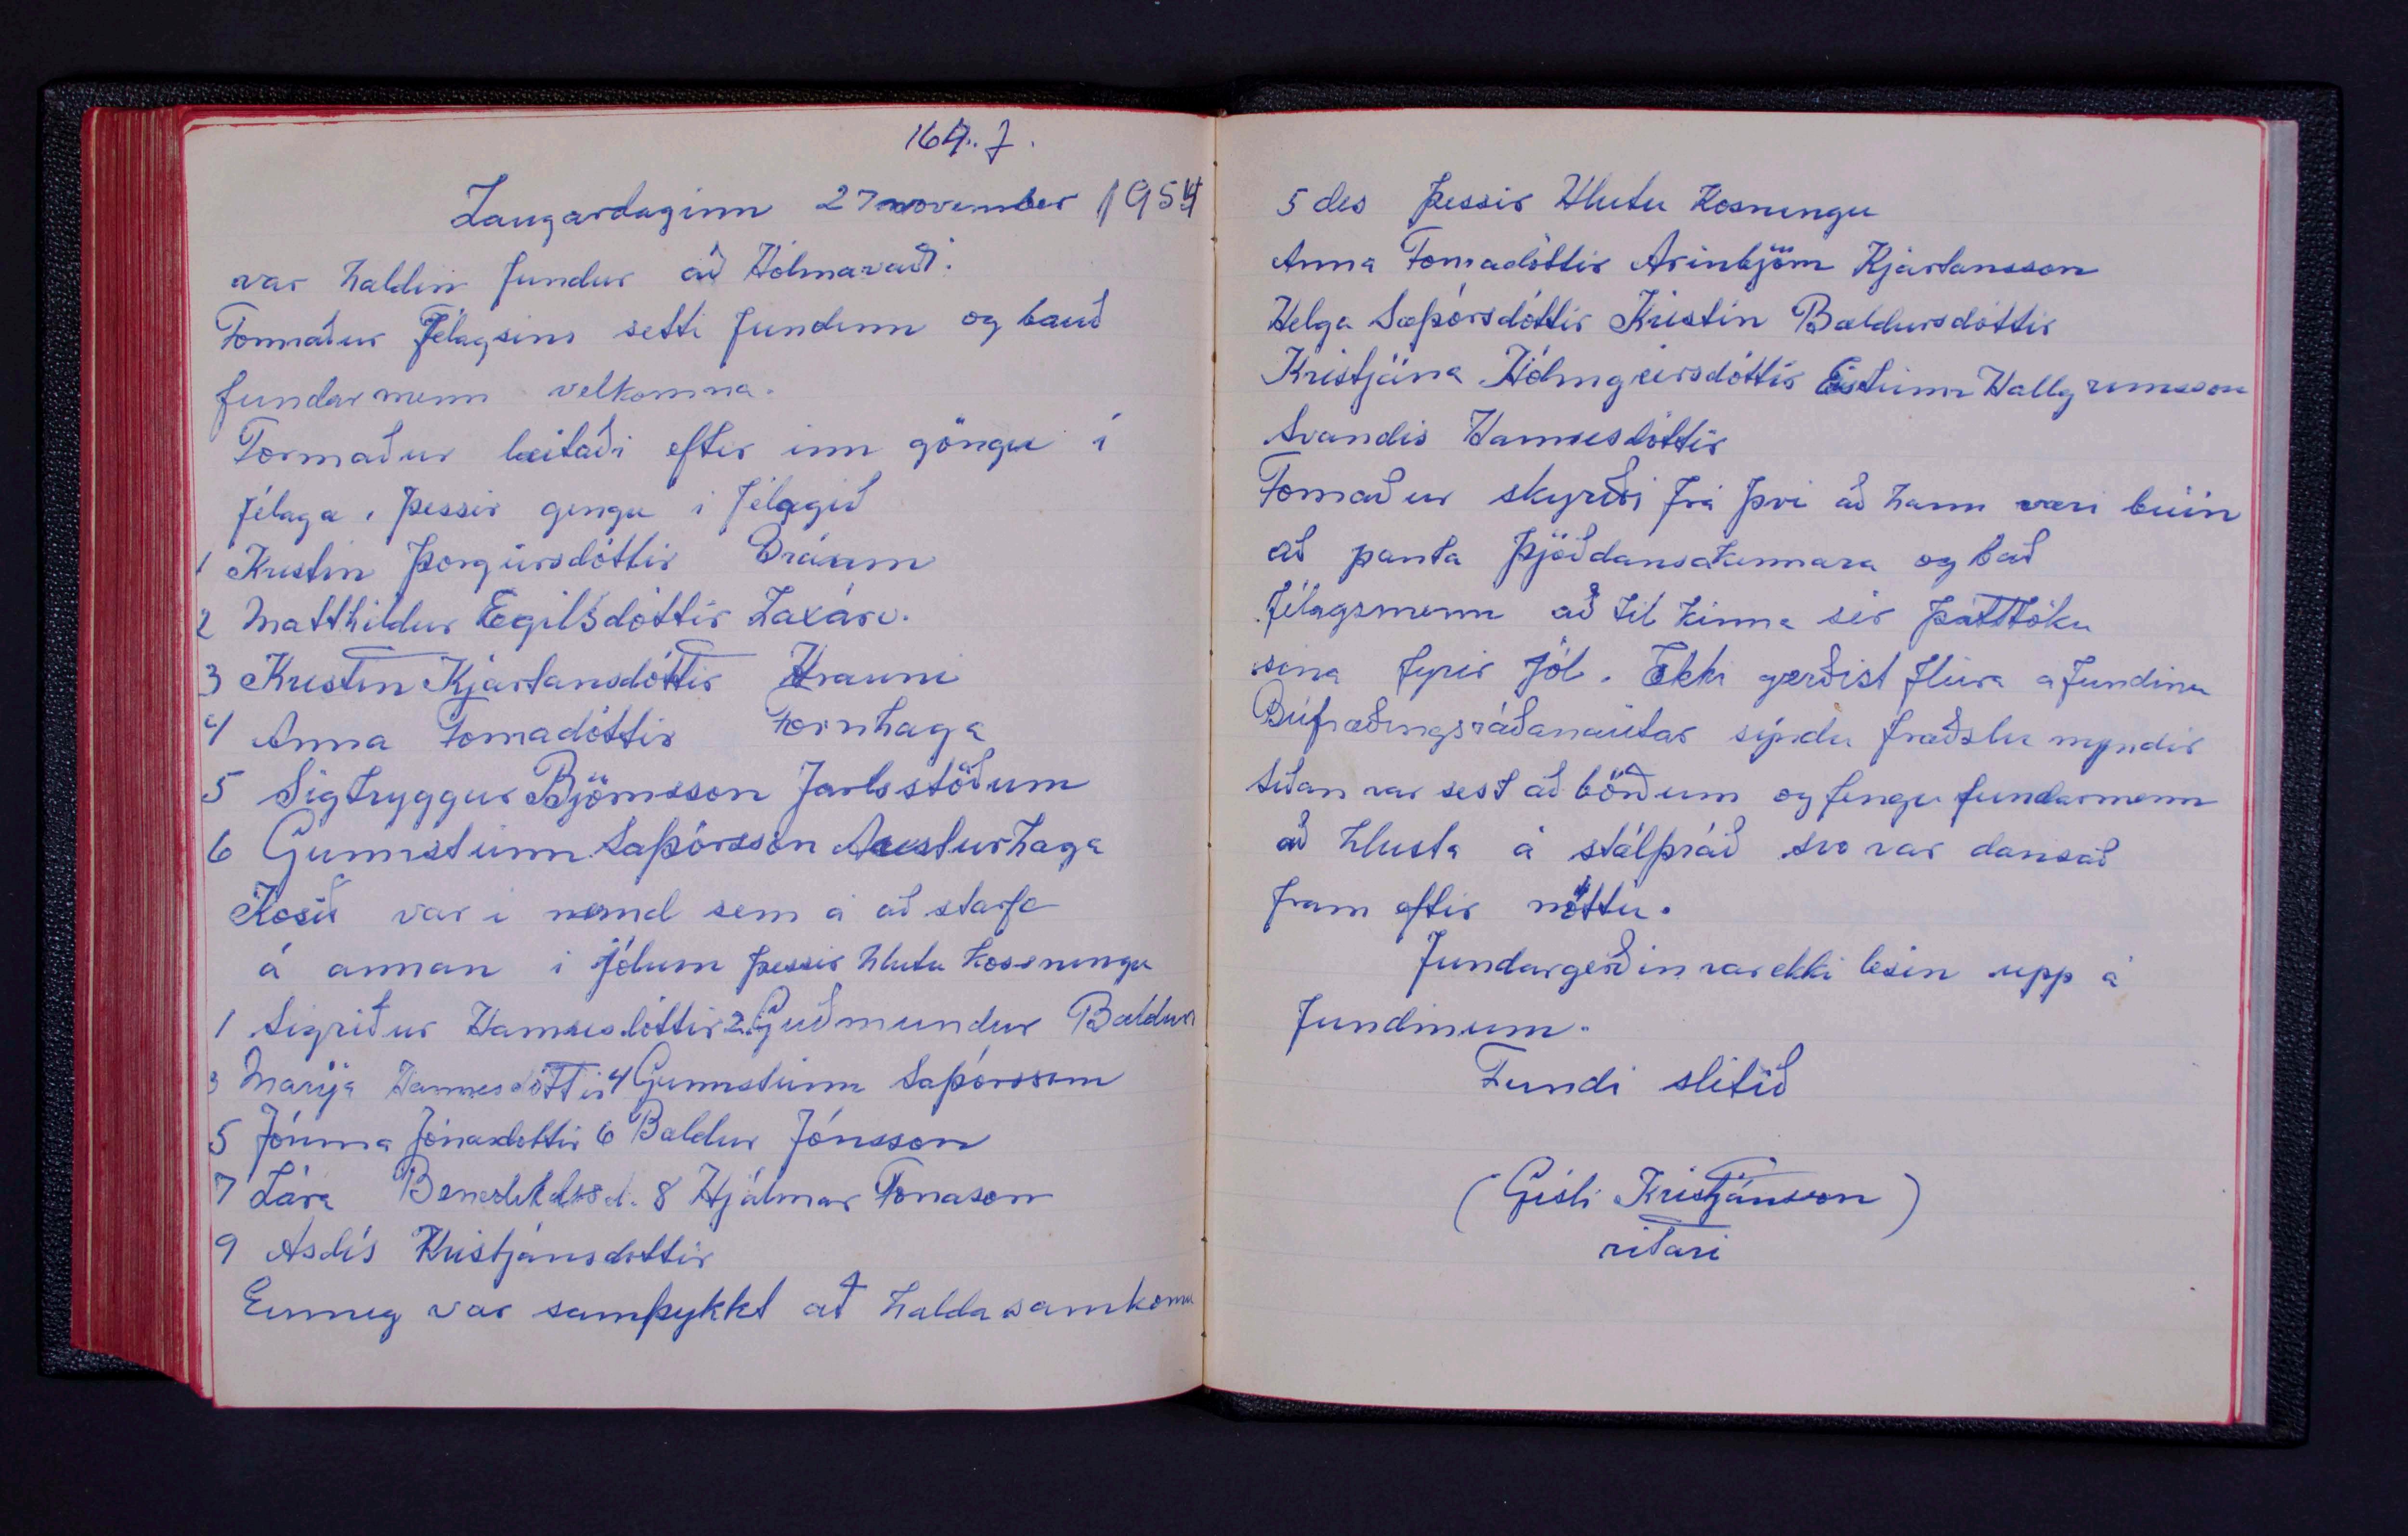 164. f.
Laugardaginn 27 november 1954
var haldin fundur að Hólmavaði.
Formaður Félagsins setti fundinn og bauð
fundarmenn velkomna.
Formaður leitaði eftir inn göngu í
félaga. þessir gengu i félagið
1 Kristin Þorgeirsdóttir Bráum
2 Matthildur Egilsdóttir Laxárv.
3 Kristin Kjartansdóttir Hrauni
4 Anna Tomadóttir Fornhaga
5 Sigtryggur Björnsson Jarlsstöðum
6 Gunnsteinn Sæþórsson Austurhaga
Kosið var i nemd sem á að starfa
á annan i jólum þessir hlutu kossningu
1 Sigriður Hannesdóttir 2. Guðmundur Baldurs
3 Marija Hannesdóttir 4 Gunnsteinn Sæþórsson
5 Jónina Jónasdottir 6 Baldur Jónsson
7 Lára Benediktsd. 8 Hjálmar Jonason
9 Asdís Kristjánsdottir
Einnig var samþykkt að halda samkomu
5 des þessir Hlutu Kosningu
Anna Tomadóttir Arinbjörn Kjartansson
Helga Sæþórsdóttir Kristín Baldursdóttir
Kristjána Hólmgeirsdóttir Eisteinn Hallgrimsson
Svandis Hannesdóttir
Formaður skyrði frá því að hann væri búin
að panta þjóðdansakennara og bað
félagsmenn að til kinna sér þátttöku
sina fyrir jól. Ekki gerðist fleira a fundinu
Búfræðingsráðanautar sýndu fræðslu myndir
Síðan var sest að börðum og fengu fundarmenn
að hlusta á stálþráð svo var dansað
fram eftir nóttu.
Fundargerðin var ekki lesin upp á
fundinum.
Fundi slitið
(Gisli Kristjánsson)
ritari